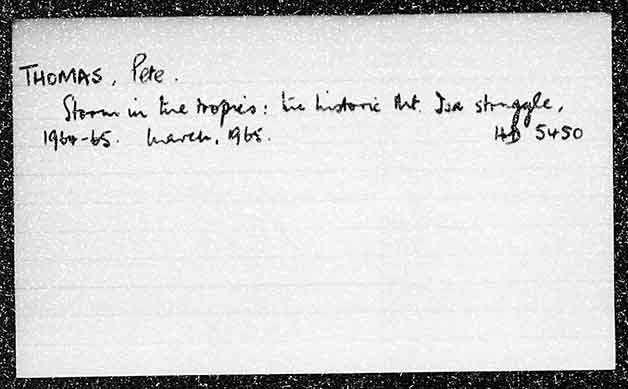 THOMAS, Pete.
Storm in the tropics: the historic Mt. Isa struggle,
1964-65. March, 1965. HD 5450